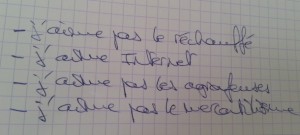 - j'aime pas le réchauffé
- j'aime Internet
- j'aime pas les agrafeuses
- j'aime pas le mercantilisme